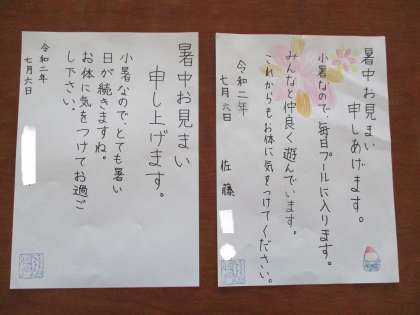 暑中お見まい
申しあげます。
小暑なので、毎日プールに入ります。
みんなと仲良く遊んでいます。
これからもお体に気をつけてください。
令和二年
七月六日
佐藤
暑中お見まい
申し上げます。
小暑なので、とても暑い
日が続きますね。
お体に気をつけてお過ご
し下さい。
令和二年
七月六日